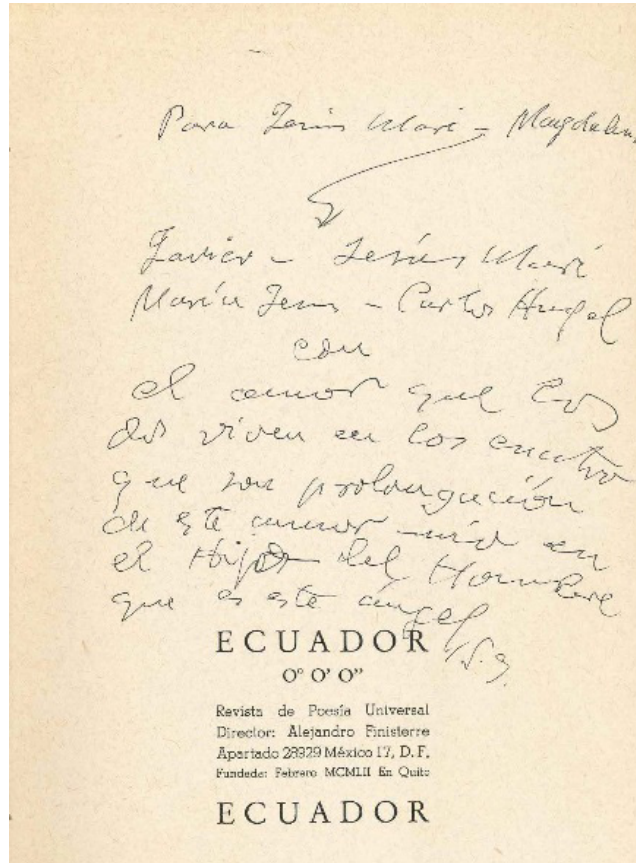 Para Jesús Mari - Magdalena
Javier - Jesús Mari
María Jesus - Carlos Angel
con
el amor que los
dos viven en los cuatro
que son prolongación
de este amor mío en
el Hijo del Hombre
que es este ángel
ECUADOR
0° 0' 0”
Revista de Poesía Universal
Director: Alejandro Finisterre
Apartado 28929 México 17, D. F.
Fundada: Febrero MCMLII En Quito
ECUADOR